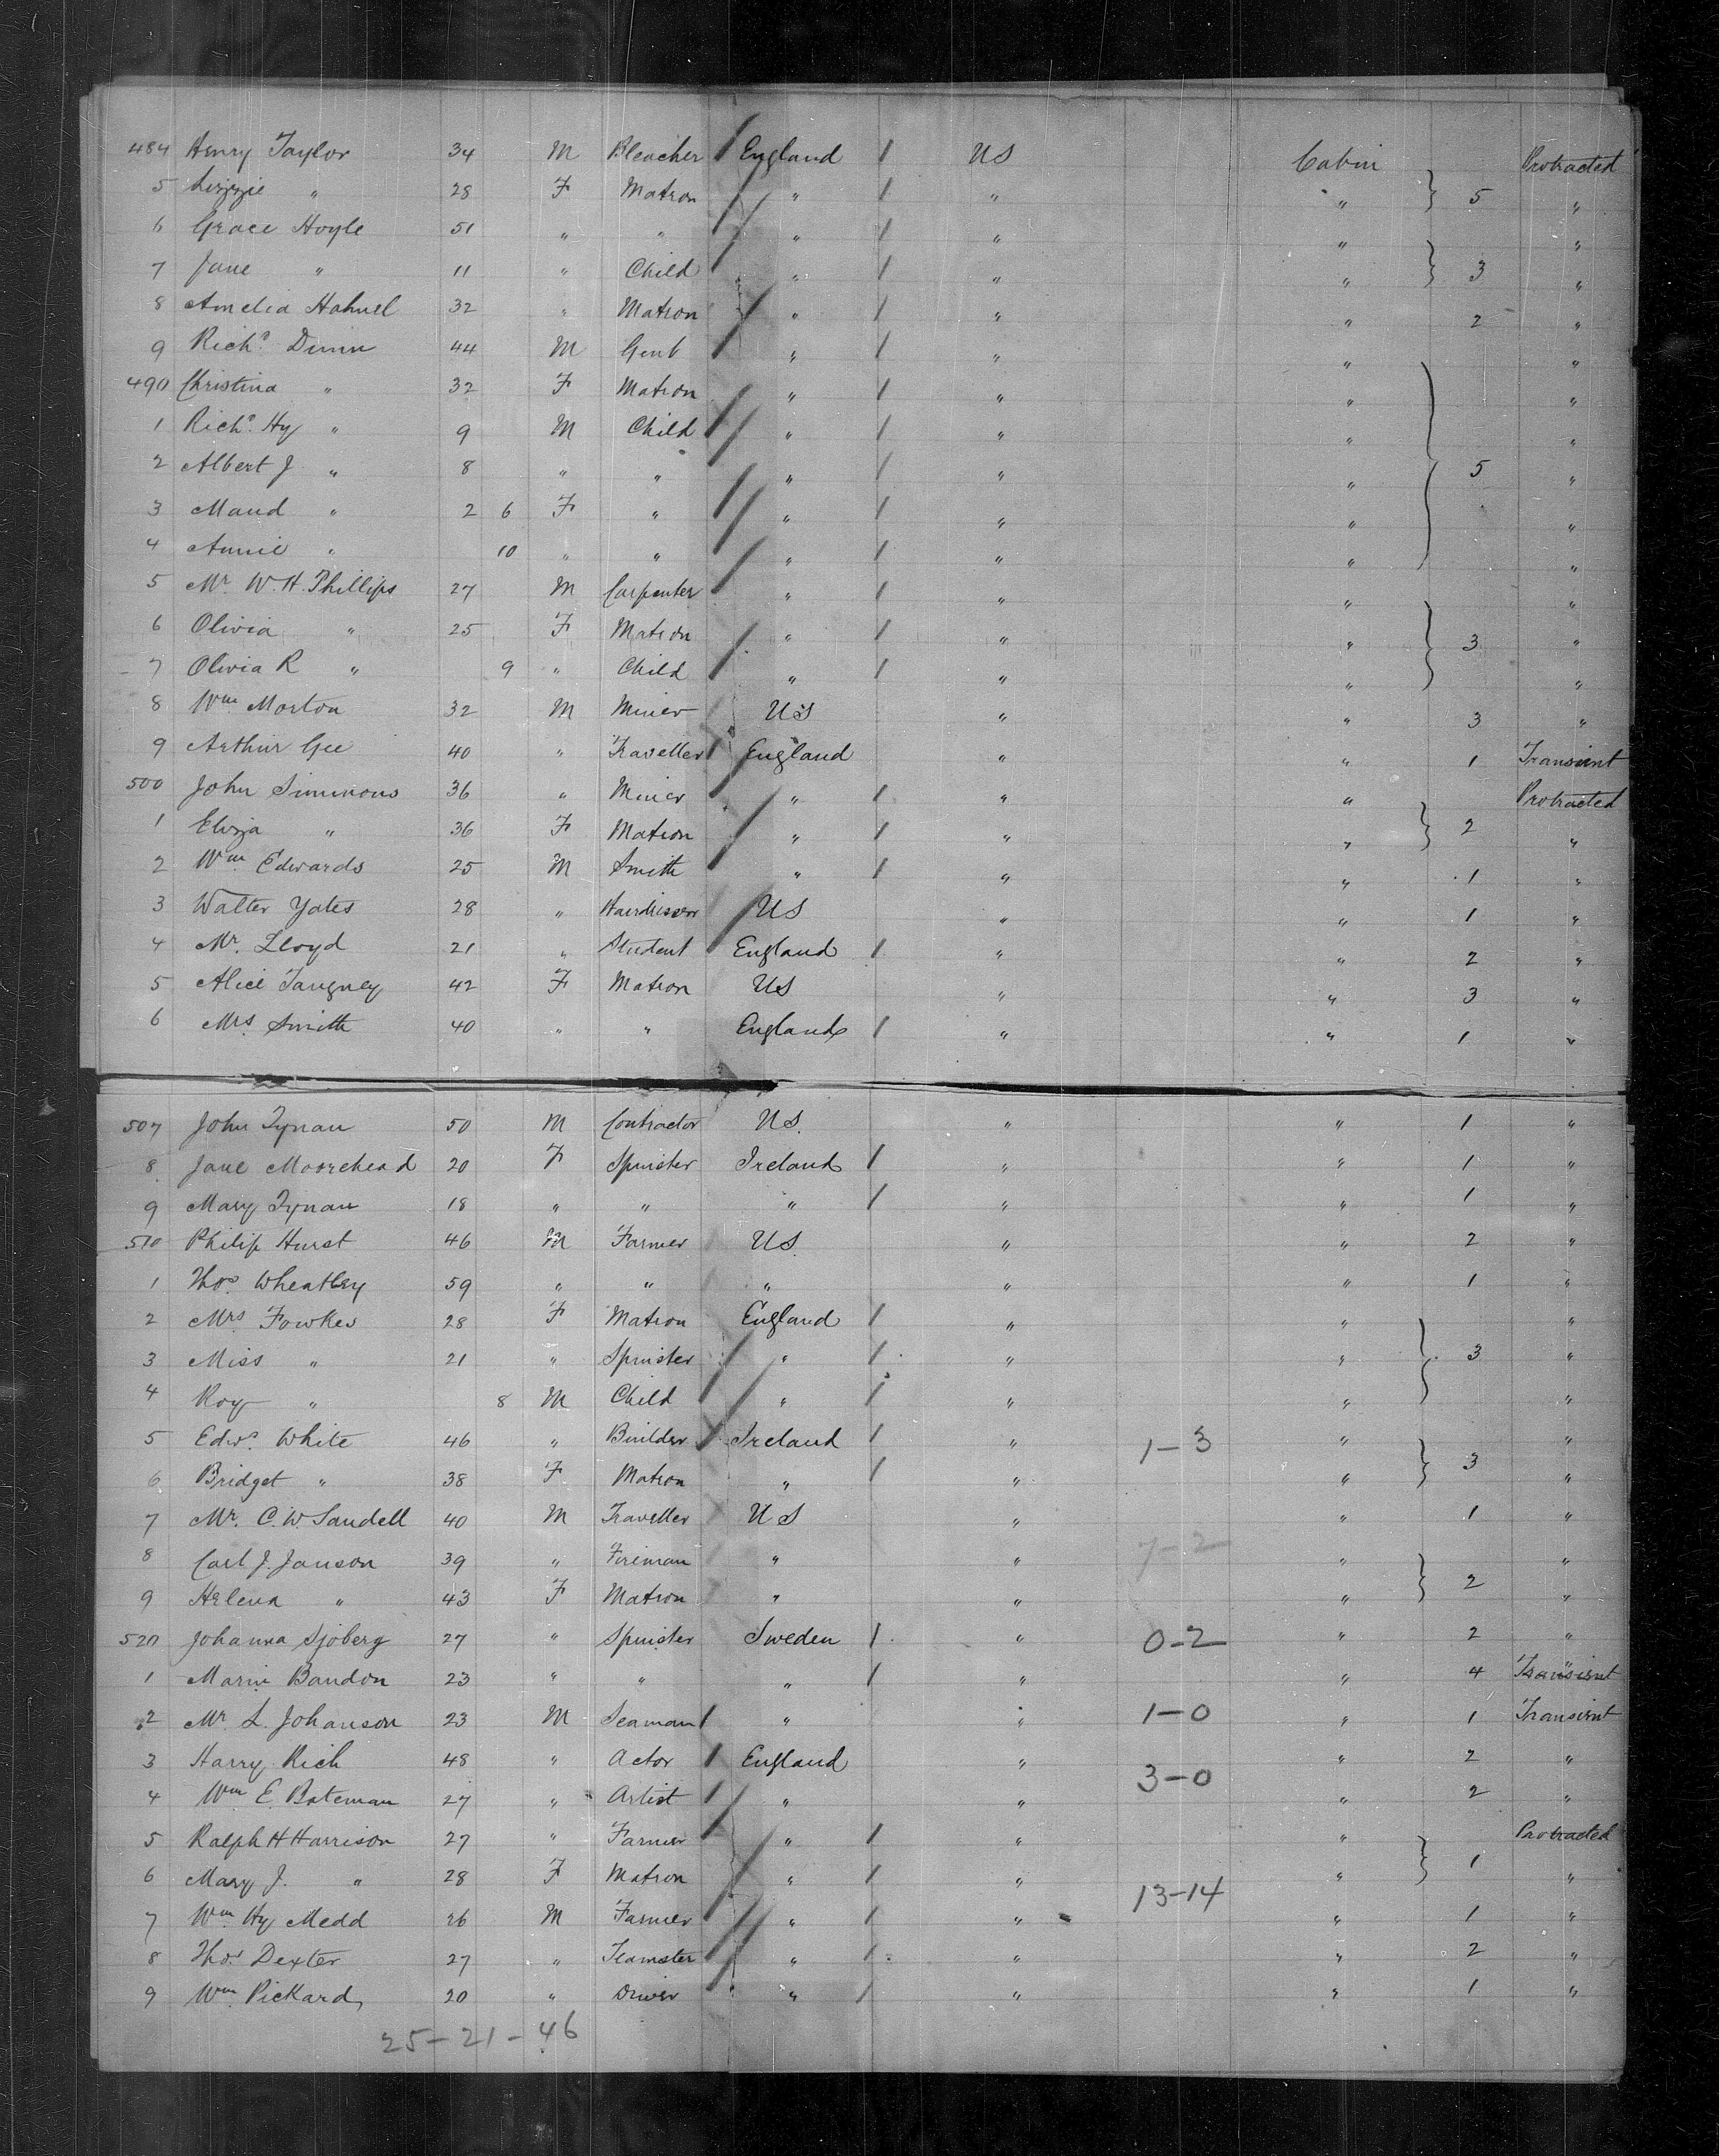 484 Henry Taylor 34 M Bleacher England / US Cabin Protracted
5 Lizzie " 28 F Matron " / " " } 5 "
6 Grace Hoyle 51 " " " / " " "
7 Jane " 11 " Child " / " " } 3 "
8 Amelia Hahnel 32 " Matron " / " " 2 "
9 Richd. Dunn 44 M Gent " / " " "
490 Christina " 32 F Matron " / " " "
1 Richd. Hy " 9 M Child " / " " "
2 Albert J. " 8 " " " / " " } 5 "
3 Maud " 2 6 F " " / " " "
4 Annie " 10 " " " / " " "
5 Mr. W. H. Phillips 27 M Carpenter " / " " "
6 Olivia " 25 F Matron " / " " } 3 "
7 Olivia R " 9 " Child " / " " "
8 Wm Morton 32 M Miner US " " 3 "
9 Arthur Gee 40 " Traveller England " " 1 Transient
500 John Simmons 36 " Miner " / " " Protracted
1 Eliza " 36 F Matron " / " " } 2 "
2 Wm Edwards 25 M Smith " / " " 1 "
3 Walter Yates 28 " Hairdresser US " " 1 "
4 Mr. Lloyd 21 " Student England / " " 2 "
5 Alice Tangney 42 F Matron US " " 3 "
6 Mrs. Smith 40 " " England / " " 1 "
507 John Tynan 50 M Contractor US. " " 1 "
8 Jane Moorehead 20 F Spinster Ireland / " " 1 "
9 Mary Tynan 18 " " " / " " 1 "
510 Philip Hurst 46 M Farmer US. " " 2 "
1 Thos. Wheatley 59 " " " " " 1 "
2 Mrs Fowkes 28 F Matron England / " " "
3 Miss " 21 " Spinster " / " " } 3 "
4 Roy " 8 M Child " / " " "
5 Edwd. White 46 " Builder Ireland / " 1-3 " "
6 Bridget " 38 F Matron " / " " } 3 "
7 Mr. C. W. Sandell 40 M Traveller US " " 1 "
8 Carl J. Janson 39 " Fireman " " 7-2 " "
9 Helena " 43 F Matron " " " } 2 "
520 Johanna Sjoberg 27 " Spinster Sweden / " 0-2 " 2 "
1 Marin Bandon 23 " " " / " " 4 Transient
2 Mr. L. Johanson 23 M Seaman " " 1-0 " 1 Transient
3 Harry Rich 48 " Actor England " " 2 "
4 Wm E. Bateman 27 " Artist " " 3-0 " 2 "
5 Ralph H Harrison 27 " Farmer " / " " Protracted
6 Mary J. " 28 F Matron " / " " } 1 "
7 Wm Hy Medd 26 M Farmer " / " 13-14 " 1 "
8 Thos. Dexter 27 " Teamster " / " " 2 "
9 Wm Pickard 20 " Driver " / " " 1 "
25-21-46